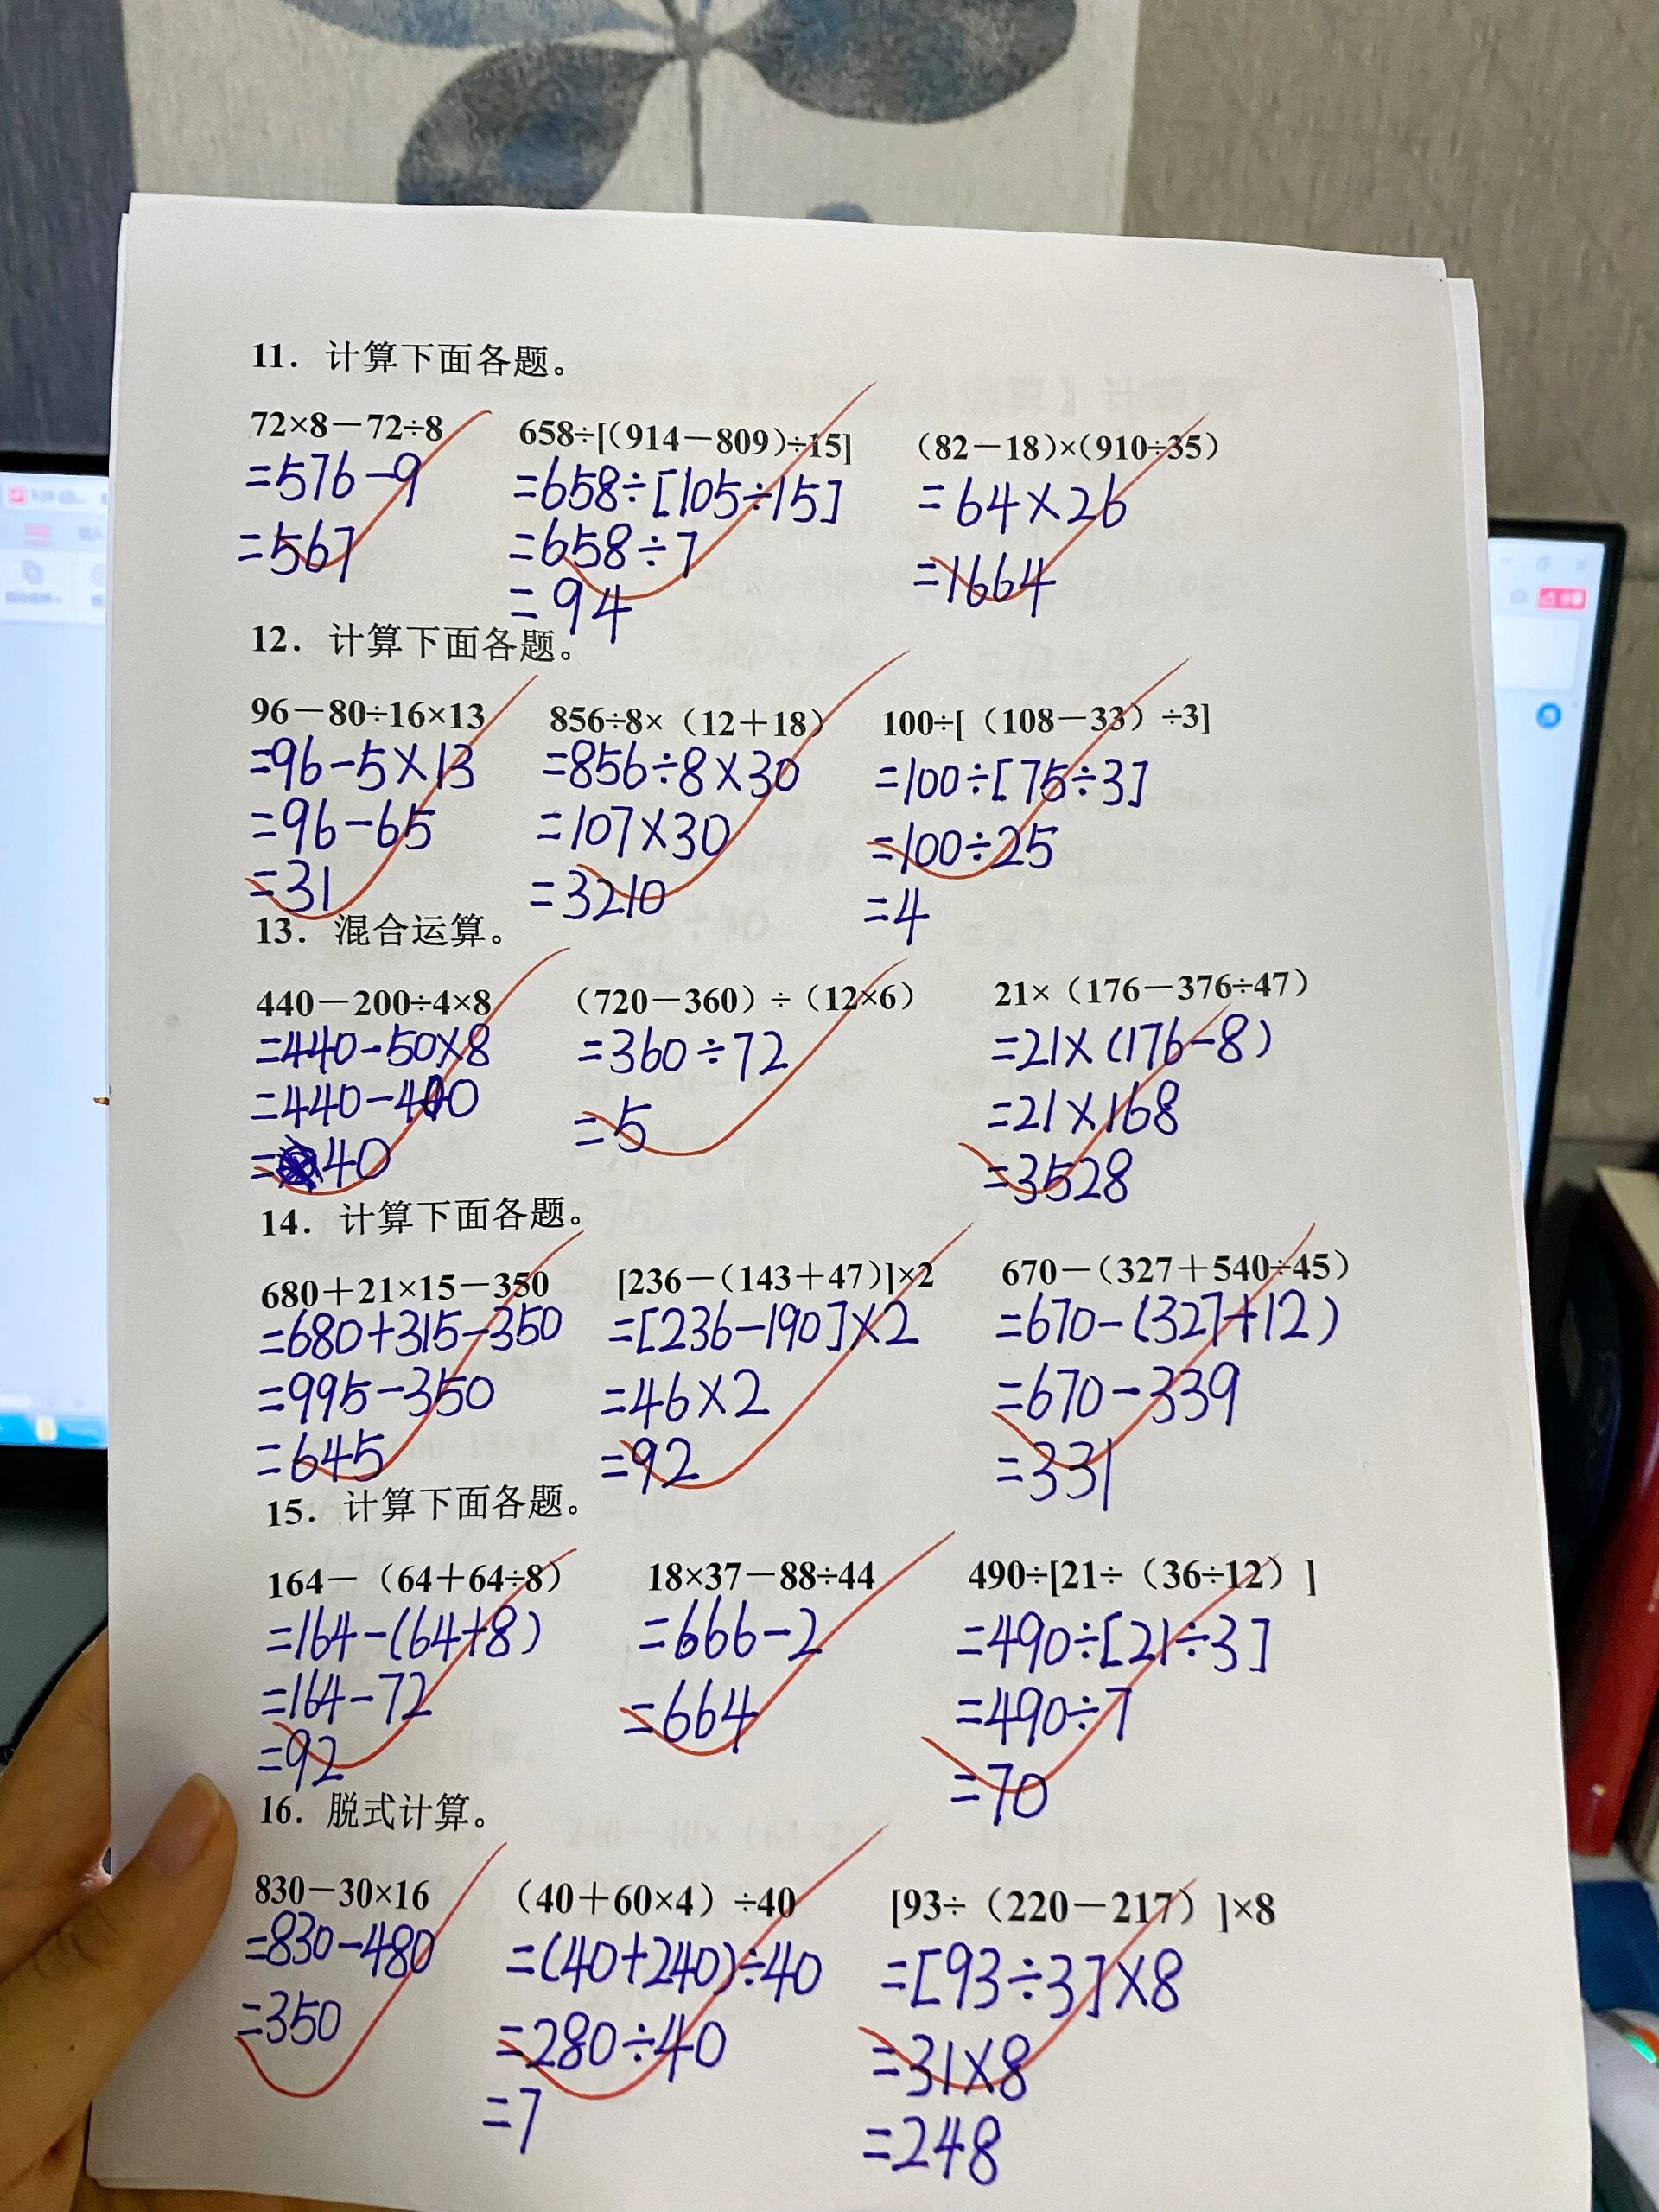 11. 计算下面各题。
72×8－72÷8 658÷[(914－809)÷15] (82－18)×(910÷35)
=576-9 =658÷[105÷15] =64×26
=567 =658÷7 =1664
=94
12. 计算下面各题。
96－80÷16×13 856÷8×（12＋18） 100÷[（108－33）÷3]
=96-5×13 =856÷8×30 =100÷[75÷3]
=96-65 =107×30 =100÷25
=31 =3210 =4
13. 混合运算。
440－200÷4×8 （720－360）÷（12×6） 21×（176－376÷47）
=440-50×8 =360÷72 =21×(176-8)
=440-400 =5 =21×168
=40 =3528
14. 计算下面各题。
680＋21×15－350 [236－(143＋47)]×2 670－(327＋540÷45)
=680+315-350 =[236-190]×2 =670-(327+12)
=995-350 =46×2 =670-339
=645 =92 =331
15. 计算下面各题。
164－（64＋64÷8） 18×37－88÷44 490÷[21÷（36÷12）]
=164-(64+8) =666-2 =490÷[21÷3]
=164-72 =664 =490÷7
=92 =70
16. 脱式计算。
830－30×16 （40＋60×4）÷40 [93÷（220－217）]×8
=830-480 =(40+240)÷40 =[93÷3]×8
=350 =280÷40 =31×8
=7 =248